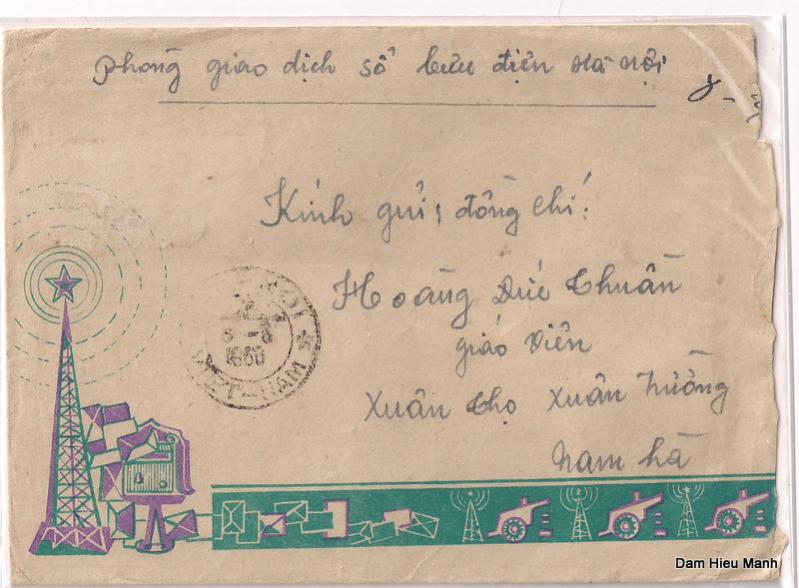 Phòng giao dịch số bưu điện Hà Nội
Kính gửi, đồng chí:
Hoàng Đức Thuần
giáo viên
Xuân Thọ Xuân Trường
Nam hà
NỘI
1966
VIỆT-NAM
Dam Hieu Manh